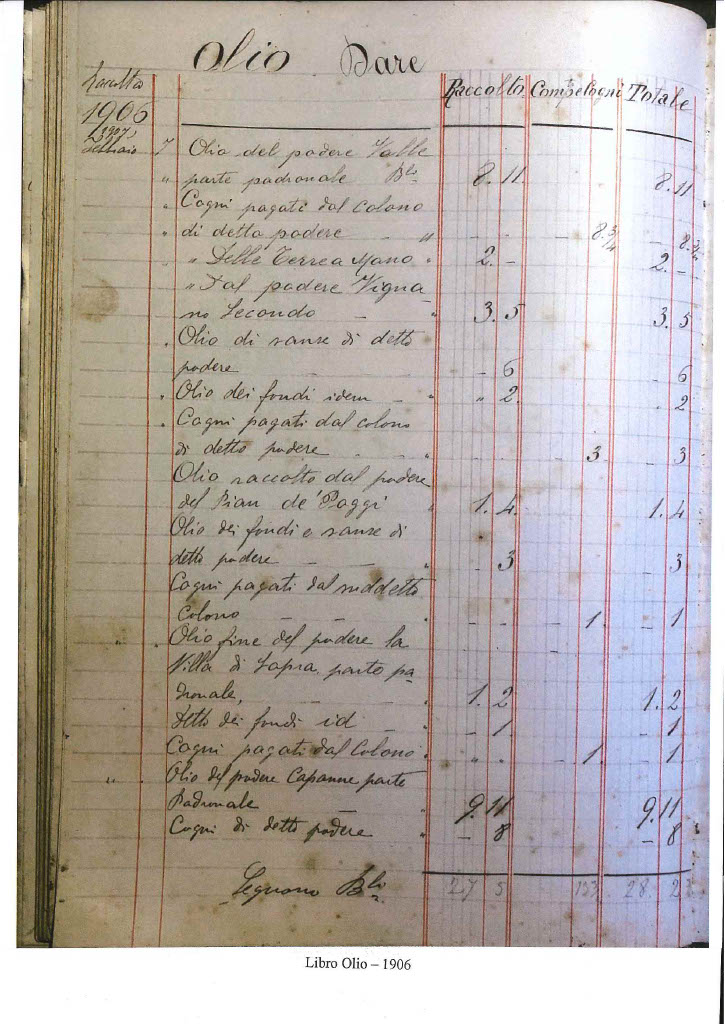 Olio Dare
Raccolta Raccolto Compelogni Totale
1906
1907
Febbraio 7 Olio del podere Valle
" parte padronale Bli 8. 11 8. 11
" Cogni pagati dal colono
" di detto podere - " - - - 8 3/4 - 8 3/4
" Delle Terre a Mano " 2. - 2. -
" Dal podere Vigna-
no Secondo - " 3. 5 3. 5
" Olio di sanse di detto
podere - 6 - 6
" Olio dei fondi idem - " " 2 . 2
" Cogni pagati dal colono
di detto podere - - " 3 - 3
Olio raccolto dal podere
del Pian de' Paggi " 1. 4 1. 4
Olio dei fondi e sanse di
detto podere - - " - 3 3
Cogni pagati dal suddetto
colono - - " - - - 1 - 1
" " Olio fine del podere la
Villa di Sopra parte pa-
dronale, - " 1. 2 1. 2
Detto dei fondi id - " - 1 - 1
Cogni pagati dal Colono " " " - 1 - 1
" " Olio del podere Capanne parte
Padronale - " 9. 11 9. 11
Cogni di detto podere " - 8 - 8
Seguono Bli 27 5 28. 2
Libro Olio – 1906